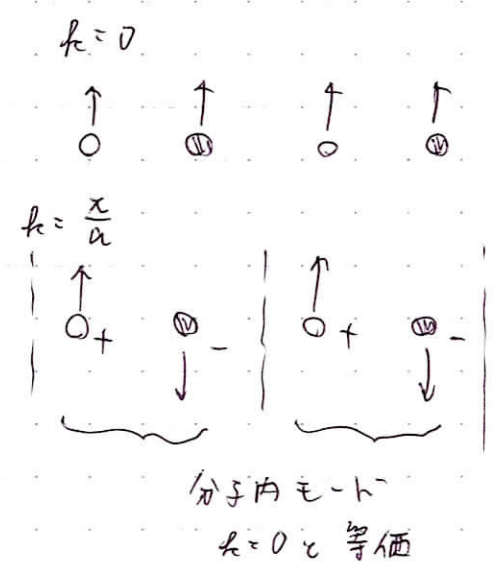 k=0
k=π/a
+ - + -
分子内モード
k=0と等価